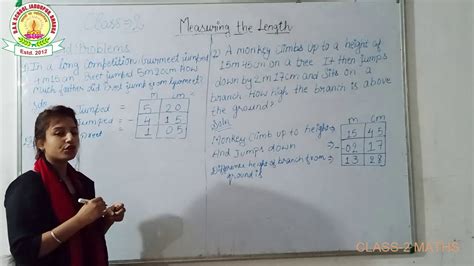 Class-2
Measuring the Length
Problems
1) In a long competition Gurmeet jumped
4m 15cm Preet jumped 5m 20cm How
much farther did Preet jump from Gurmeet?
Soln
m cm
Jumped = 5 20
Jumped = - 4 15
1 05
2) A monkey climbs up to a height of
15m 45cm on a tree It then jumps
down by 2m 17cm and sits on a
branch How high the branch is above
the ground?
Soln
m cm
Monkey climb up to height → 15 45
And Jumps down → - 02 17
Difference height of branch from → 13 28
ground is
Estd. 2012
CLASS-2 MATHS